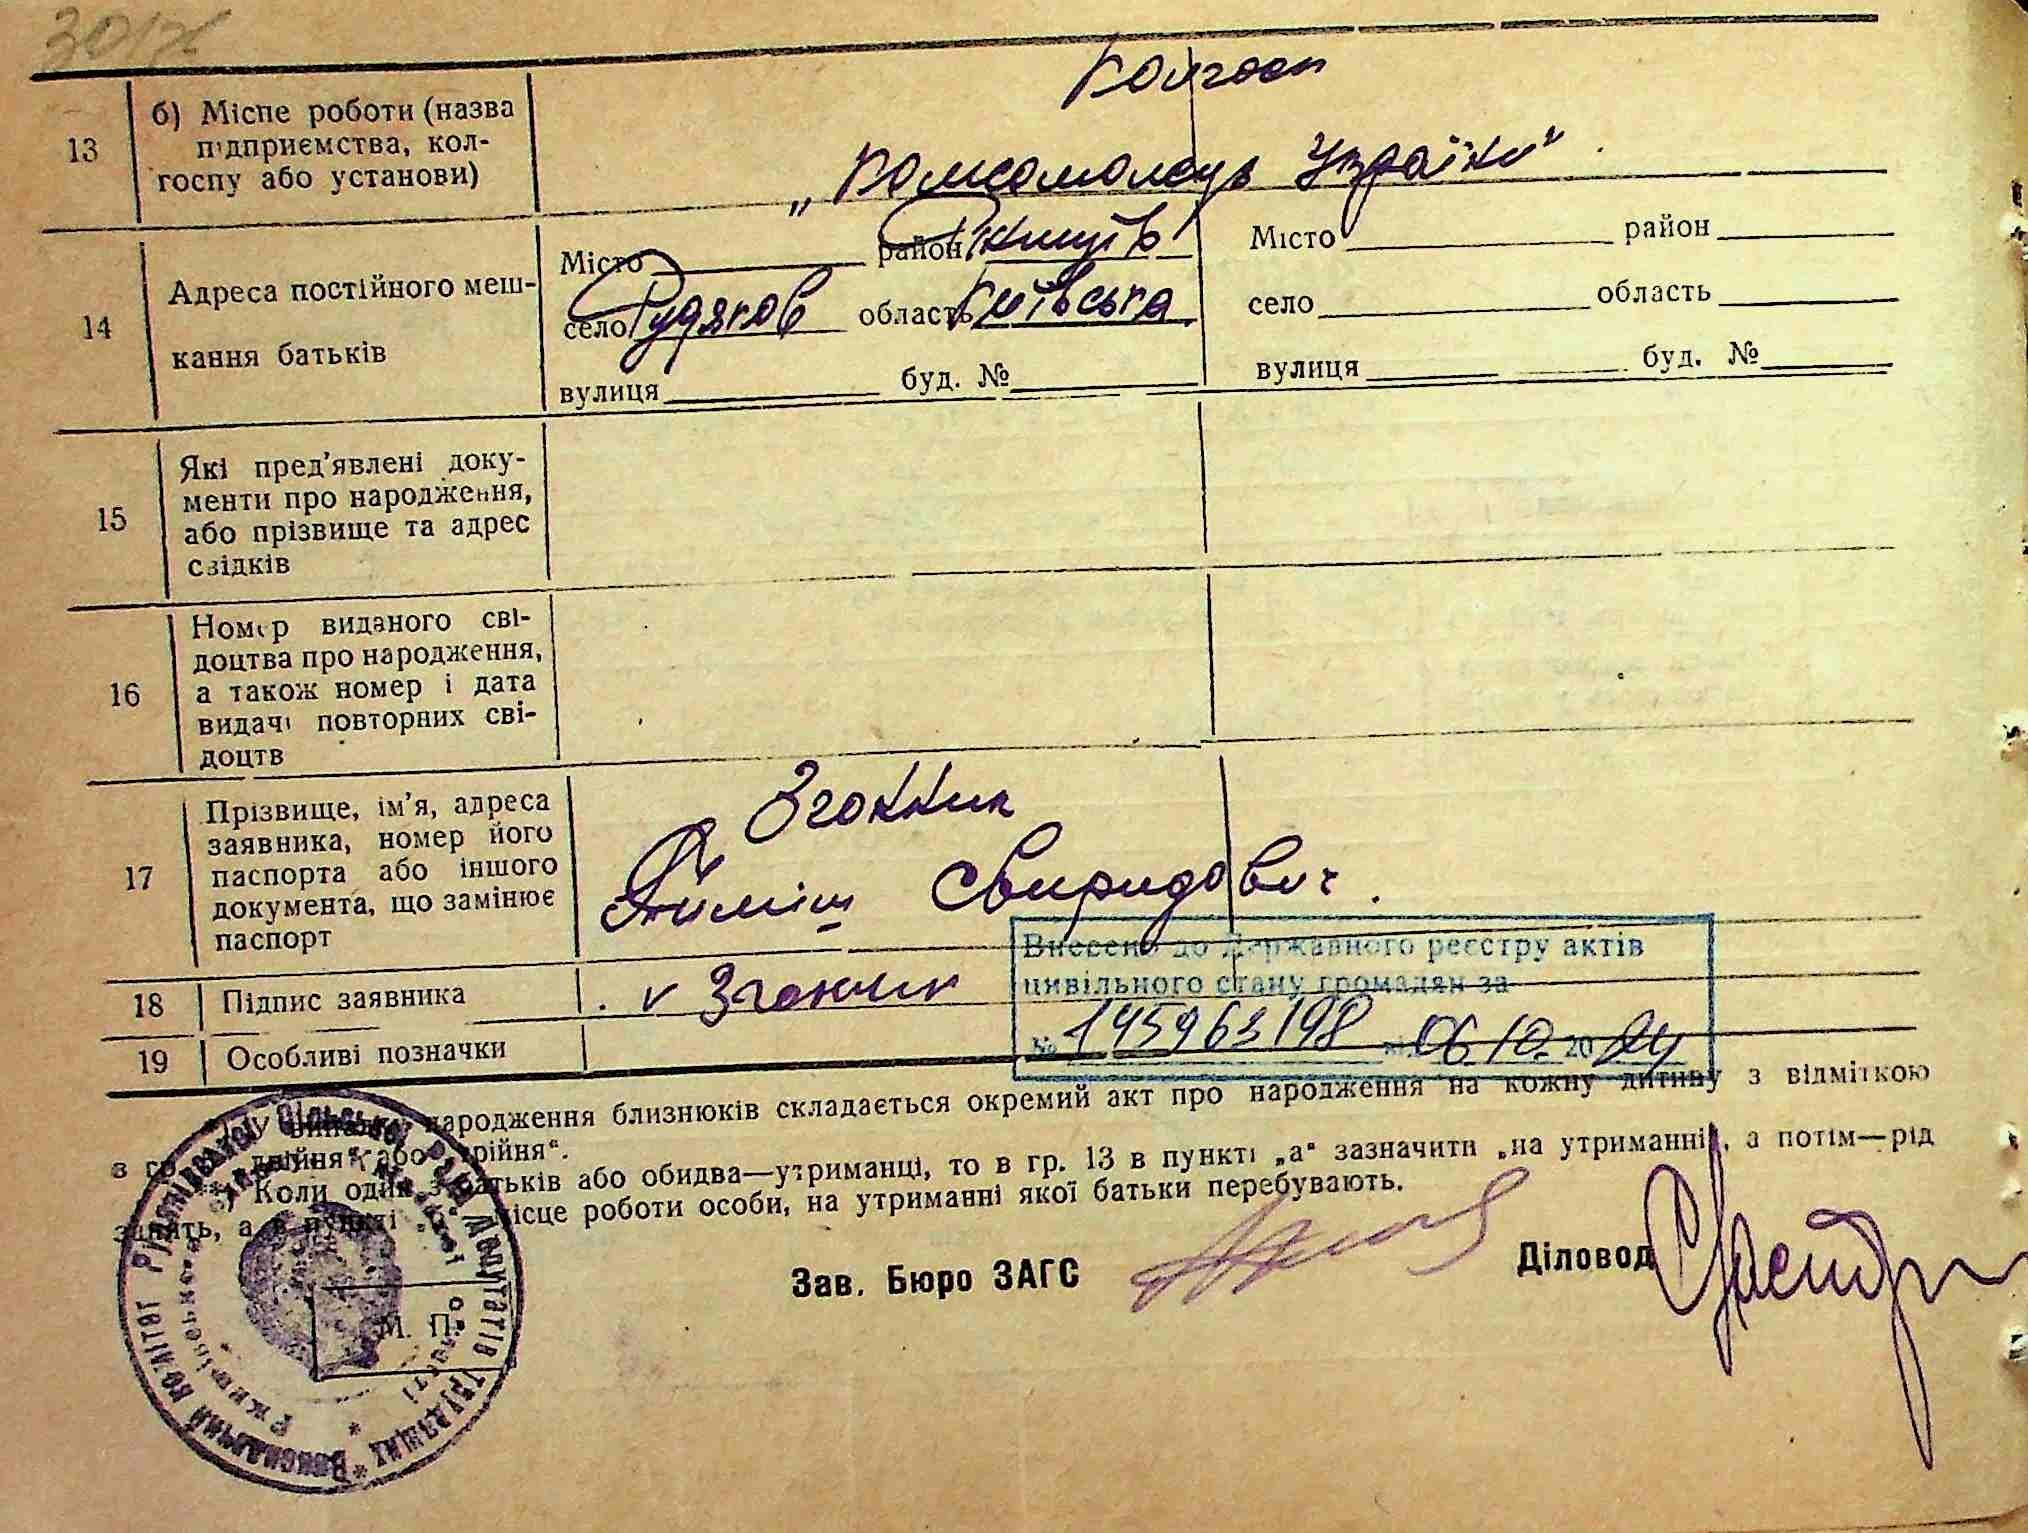 301
13
б) Місце роботи (назва
підприємства, кол-
госпу або установи)
Колгосп
„Комсомолець України".
14
Адреса постійного меш-
кання батьків
Місто район Ржищів
село Рудяков область Київська
вулиця буд. №
Місто район
село область
вулиця буд. №
15
Які пред'явлені доку-
менти про народження,
або прізвище та адрес
свідків
16
Номер виданого сві-
доцтва про народження,
а також номер і дата
видачі повторних сві-
доцтв
17
Прізвище, ім'я, адреса
заявника, номер його
паспорта або іншого
документа, що замінює
паспорт
Згонник
Тиміш Свиридович.
18
Підпис заявника
Згонник
19
Особливі позначки
Внесено до Державного реєстру актів
цивільного стану громадян за
№ 145963198 від 06.10.2024
У випадку народження близнюків складається окремий акт про народження на кожну дитину з відміткою
з гр. двійня" або трійня".
Коли один з батьків або обидва—утриманці, то в гр. 13 в пункті „а" зазначити „на утриманні", а потім—рід
занять, а в пункті „б" місце роботи особи, на утриманні якої батьки перебувають.
Зав. Бюро ЗАГС
Діловод
М. П.
Виконавчий комітет Рудяківської сільської Ради депутатів трудящих
Ржищівського району Київської області